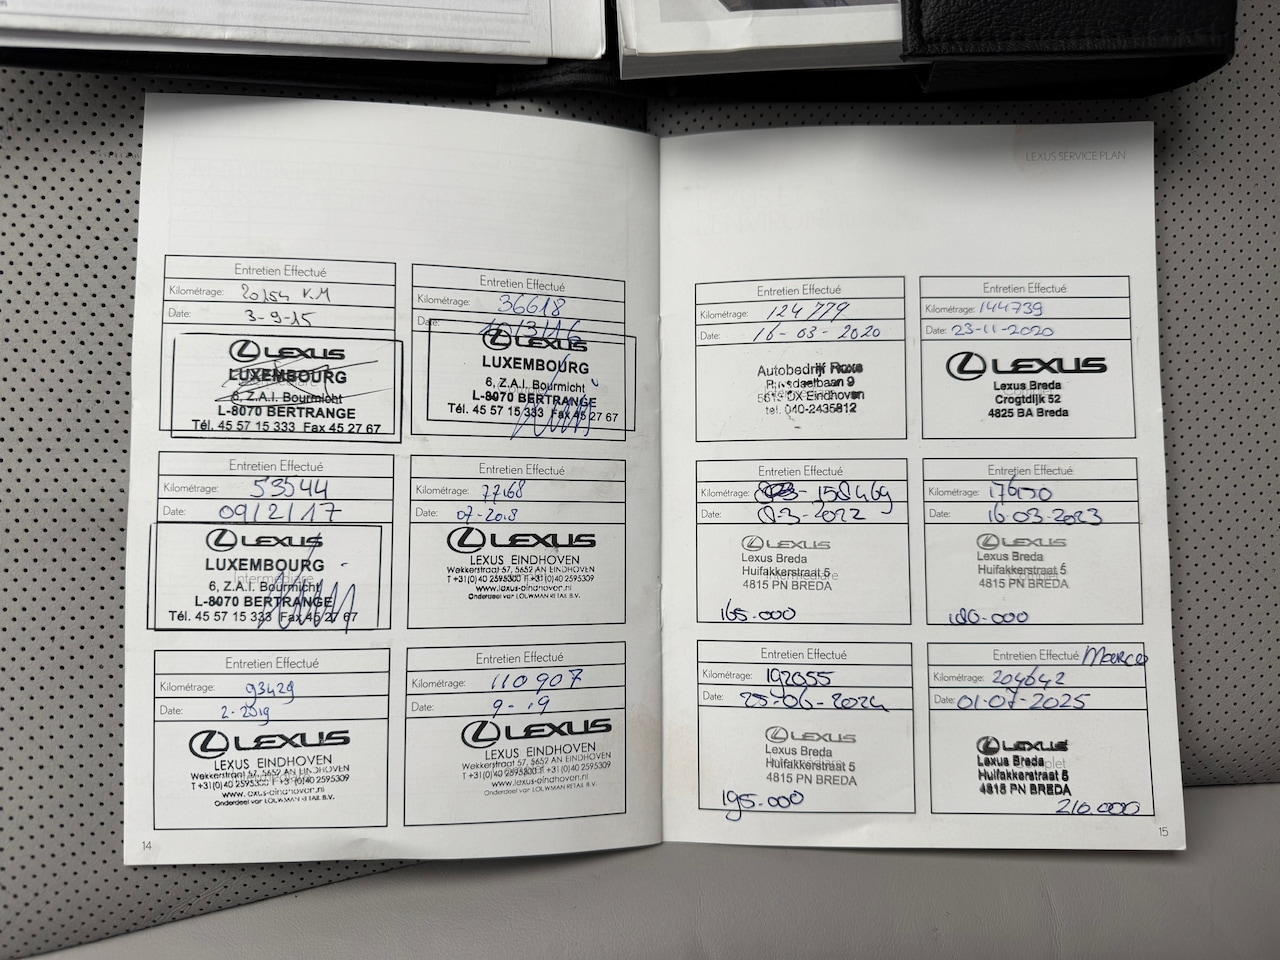 LEXUS SERVICE PLAN
Entretien Effectué
Kilométrage: 20154 K.M
Date: 3-9-15
LEXUS
LUXEMBOURG
6, Z.A.I. Bourmicht
L-8070 BERTRANGE
Tél. 45 57 15 333 Fax 45 27 67
Entretien Effectué
Kilométrage: 36618
Date:
LEXUS
LUXEMBOURG
6, Z.A.I. Bourmicht
L-8070 BERTRANGE
Tél. 45 57 15 333 Fax 45 27 67
Entretien Effectué
Kilométrage: 53544
Date: 09/2/17
LEXUS
LUXEMBOURG
Intermédiaire
6, Z.A.I. Bourmicht
L-8070 BERTRANGE
Tél. 45 57 15 333 Fax 45 27 67
Entretien Effectué
Kilométrage: 77168
Date: 07-2018
LEXUS
LEXUS EINDHOVEN
Wekkerstraat 57, 5652 AN EINDHOVEN
T +31(0)40 2595300 F +31(0)40 2595309
www.lexus-eindhoven.nl
Onderdeel van LOUWMAN RETAIL B.V.
Entretien Effectué
Kilométrage: 93429
Date: 2-2019
LEXUS
LEXUS EINDHOVEN
Wekkerstraat 57, 5652 AN EINDHOVEN
T +31(0)40 2595300 F +31(0)40 2595309
www.lexus-eindhoven.nl
Onderdeel van LOUWMAN RETAIL B.V.
Entretien Effectué
Kilométrage: 110907
Date: 9-'19
LEXUS
LEXUS EINDHOVEN
Wekkerstraat 57, 5652 AN EINDHOVEN
T +31(0)40 2595300 F +31(0)40 2595309
www.lexus-eindhoven.nl
Onderdeel van LOUWMAN RETAIL B.V.
14
Entretien Effectué
Kilométrage: 124779
Date: 16-03-2020
Autobedrijf Roxs
9
Eindhoven
tel. 040-2435812
Entretien Effectué
Kilométrage: 144739
Date: 23-11-2020
LEXUS
Lexus Breda
Crogtdijk 52
4825 BA Breda
Entretien Effectué
Kilométrage: 158469
Date: 2022
LEXUS
Lexus Breda
Huifakkerstraat 5
4815 PN BREDA
165.000
Entretien Effectué
Kilométrage: 176150
Date: 16-03-2023
LEXUS
Lexus Breda
Huifakkerstraat 5
4815 PN BREDA
180.000
Entretien Effectué
Kilométrage: 192055
Date: 25-06-2024
LEXUS
Lexus Breda
Huifakkerstraat 5
4815 PN BREDA
195.000
Entretien Effectué
Kilométrage: 204642
Date: 01-07-2025
LEXUS
Lexus Breda
Huifakkerstraat 5
4815 PN BREDA
210.000
15